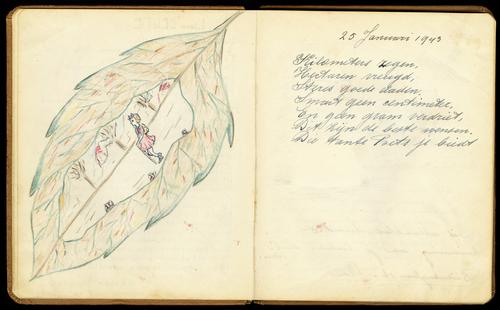 25 Januari 1943
Kilometers zegen,
Hectaren vreugd,
Steres goede daden,
Smart geen centimeter,
En geen gram verdriet,
Dit zijn de beste wensen.
Die tante je biedt